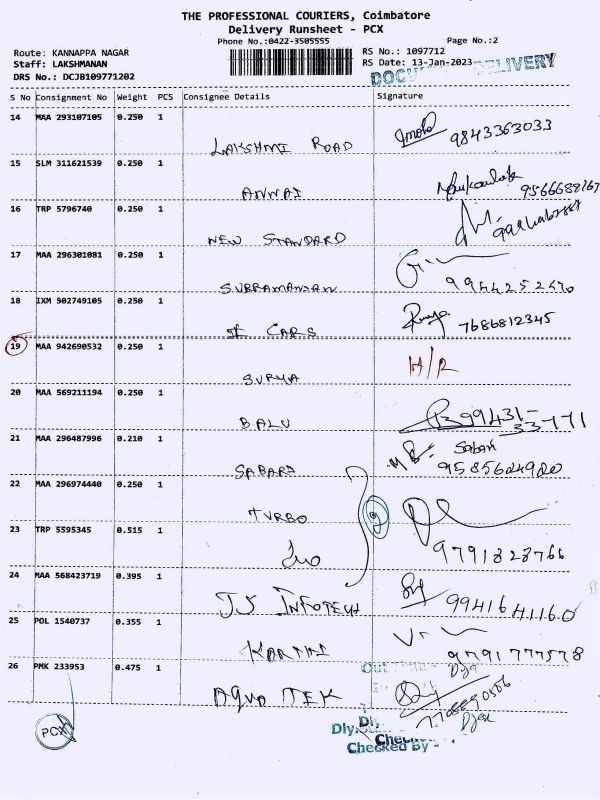 THE PROFESSIONAL COURIERS, Coimbatore
Delivery Runsheet - PCX
Phone No.:0422-3505555 Page No.:2
Route: KANNAPPA NAGAR RS No.: 1097712
Staff: LAKSHMANAN RS Date: 13-Jan-2023
DRS No.: DCJB109771202 DELIVERY
S No Consignment No Weight PCS Consignee Details Signature
14 MAA 293107105 0.250 1
LAKSHMI ROAD 9843363033
15 SLM 311621539 0.250 1
ANNAI
16 TRP 5796740 0.250 1
NEW STANDARD
17 MAA 296301081 0.250 1
SUBRAMANIAN 9944252470
18 IXM 502749105 0.250 1
CARS 7686812345
19 MAA 942690532 0.250 1 H/R
SURYA
20 MAA 569211194 0.250 1
BALU 99431-33771
21 MAA 296487996 0.210 1 Sabari
SABARI 9585624920
22 MAA 296974440 0.250 1
TURBO
23 TRP 5595345 0.515 1
9791328766
24 MAA 568423719 0.395 1
JJ INFOTECH 9941641160
25 POL 1540737 0.355 1
9791777578
26 PMK 233953 0.475 1 Out
AQUA TEK
PCX
Checked By -